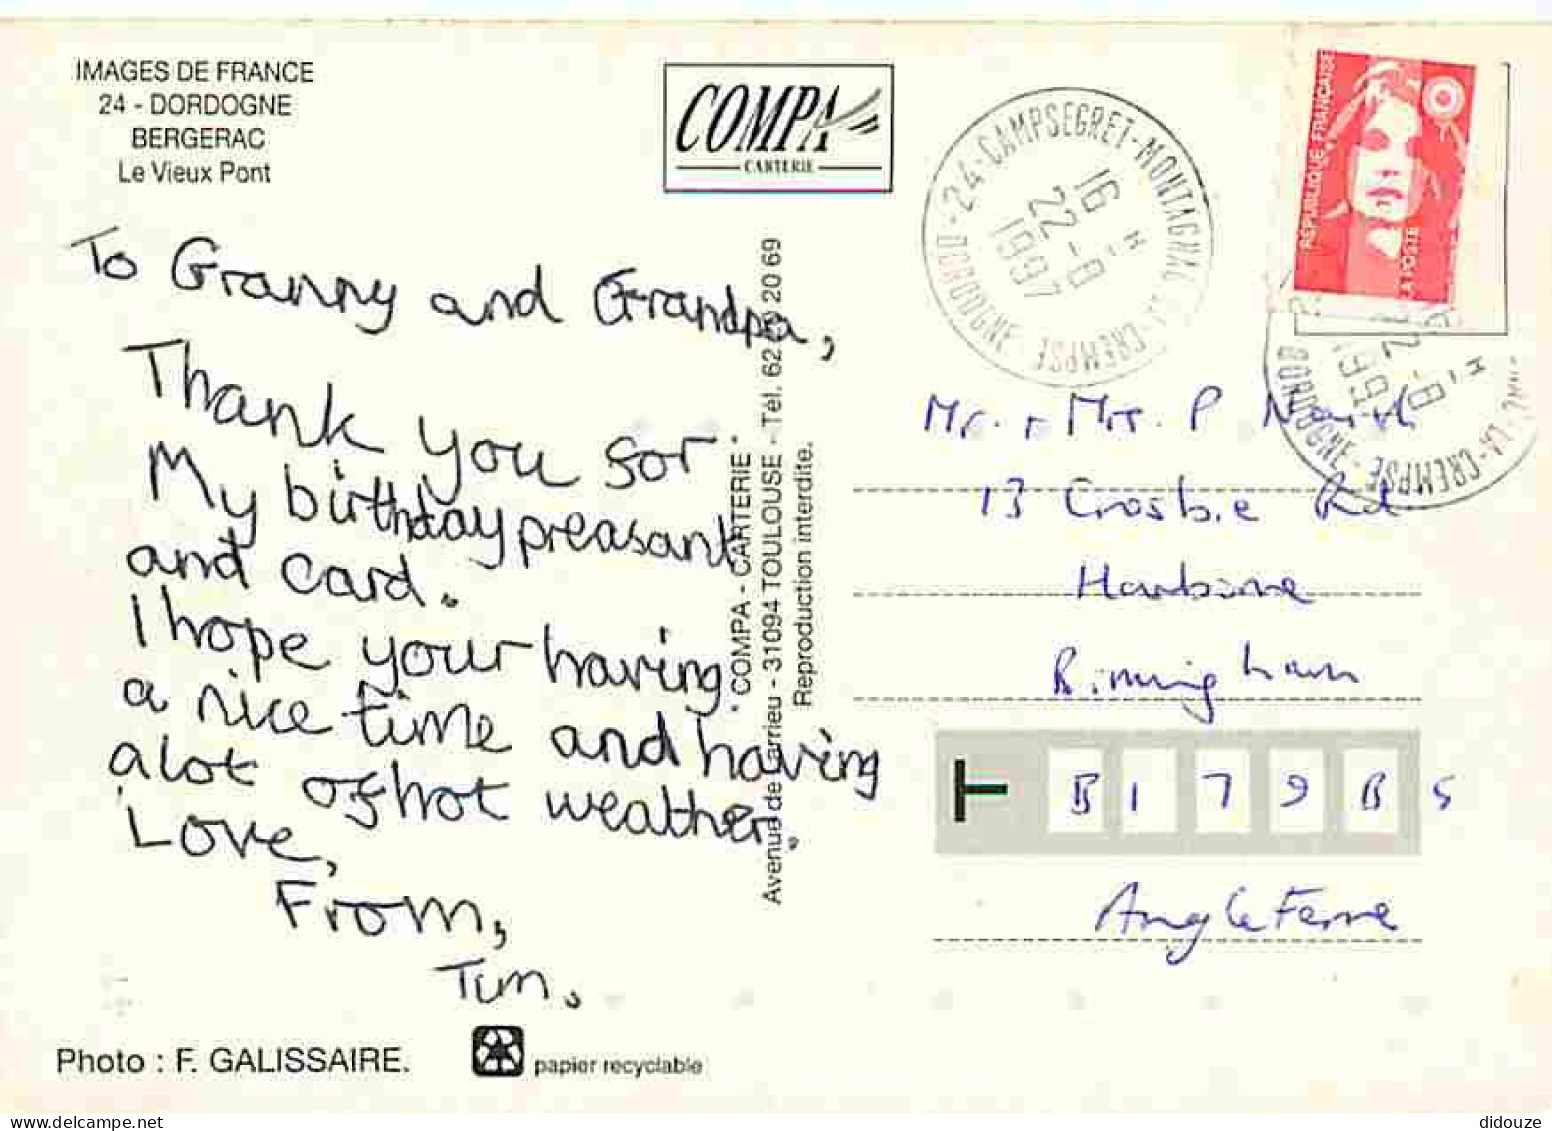 IMAGES DE FRANCE
24 - DORDOGNE
BERGERAC
Le Vieux Pont
COMPA
CARTERIE
24-CAMPSEGRET-MONTAGNAC LA-CREMPSE
DORDOGNE
16 H
22-8
1997
RÉPUBLIQUE FRANÇAISE
LA POSTE
LA-CREMPSE
DORDOGNE
To Granny and Grandpa,
Thank you for
My birthday preasant
and card.
I hope your having
a nice time and having
a lot of hot weather.
Love,
From,
Tim.
COMPA - CARTERIE
Avenue de Larrieu - 31094 TOULOUSE - Tél. 62 20 69
Reproduction interdite.
Mr. + Mrs. P
13 Crosbie Rd
Harborne
Birmingham
B 1 7 9 B S
Angleterre
Photo : F. GALISSAIRE.
papier recyclable
didouze